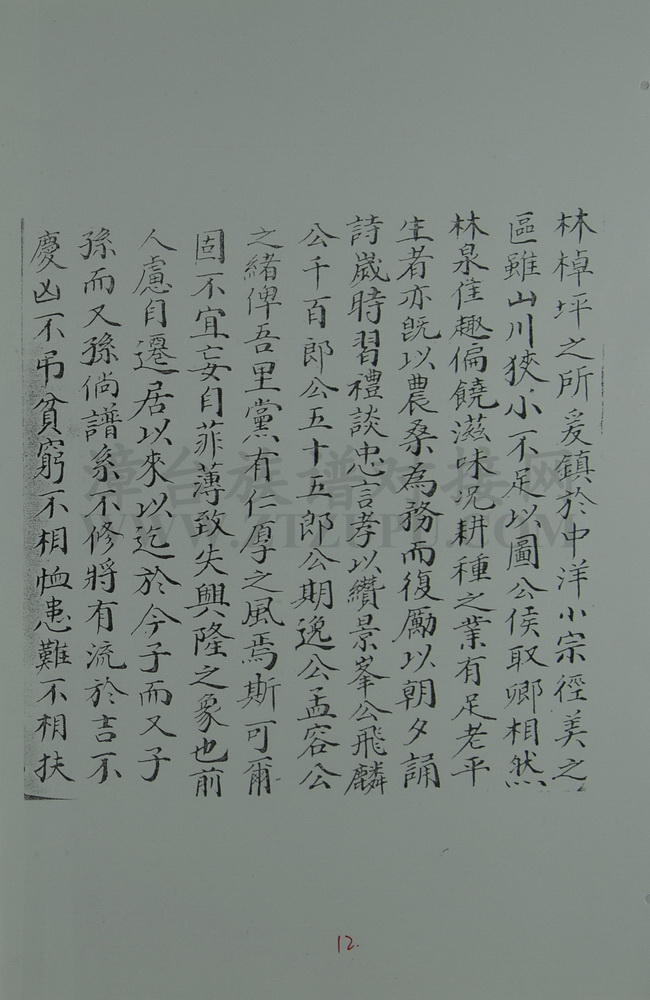 林棹坪之所爰鎮於中洋小宗徑美之
區雖山川狹小不足以圖公侯取卿相然
林泉佳趣偏饒滋味况耕種之業有足老平
生者亦既以農桑為務而復勵以朝夕誦
詩歲時習禮談忠言孝以纘景峯公飛麟
公千百郎公五十五郎公期逸公孟容公
之緒俾吾里黨有仁厚之風焉斯可爾
固不宜妄自菲薄致失興隆之象也前
人慮自遷居以來以迄於今子而又子
孫而又孫倘譜系不修將有流於吉不
慶凶不弔貧窮不相恤患難不相扶
漳台族譜对接网
WWW.ZTZUPU.COM
12.